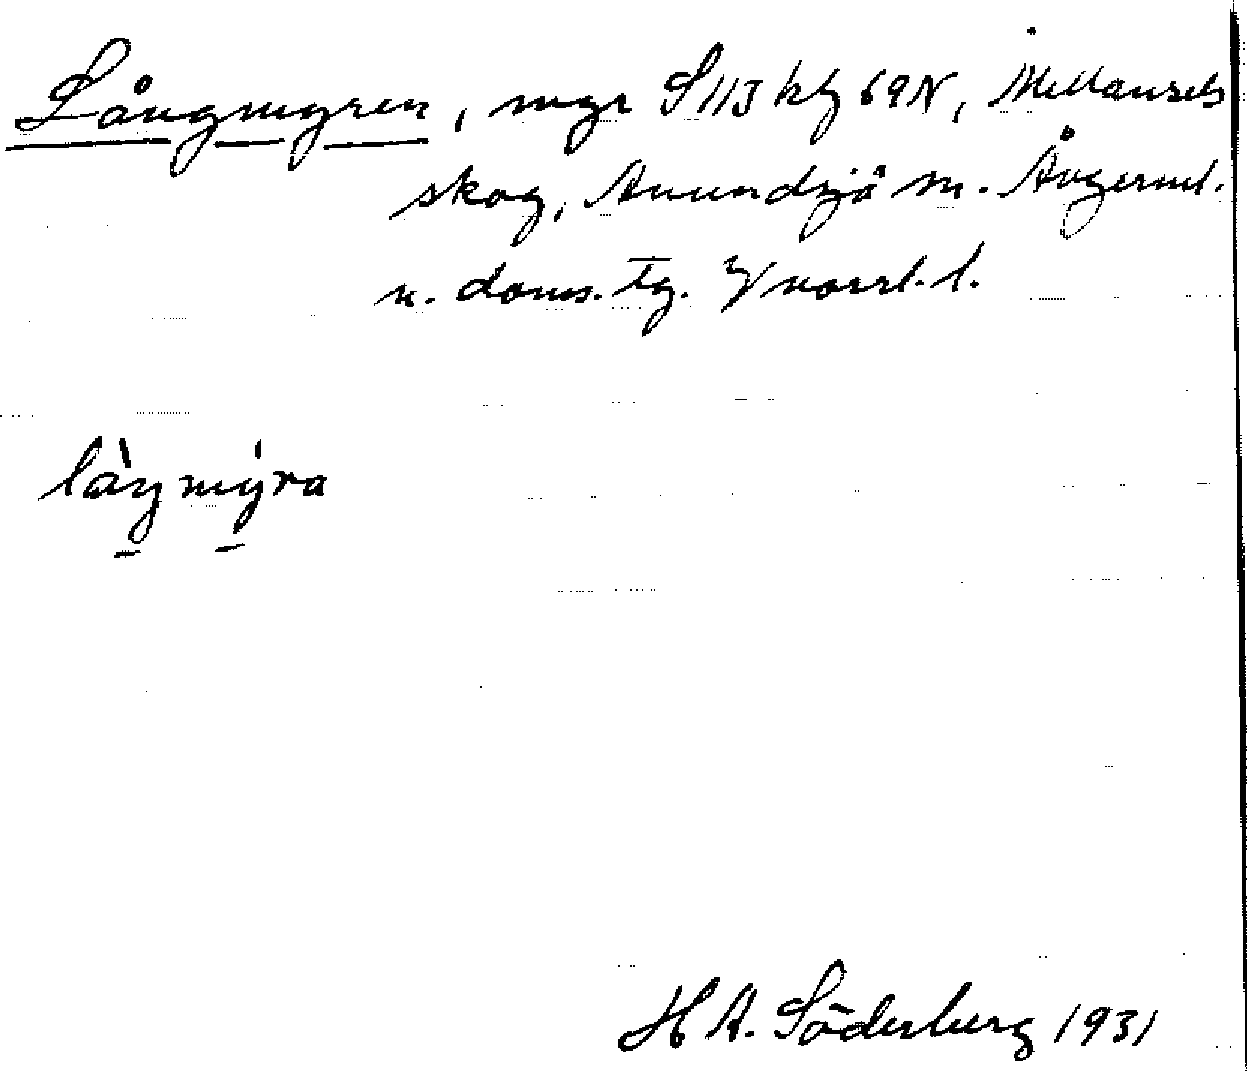 Långmyren, myr S 113 kbf 69N, Mellansels
skog, Anundsjö sn. Ångerml.
n. doms. tg. V norrl. l.
làŋmýra
H A. Söderberg 1931